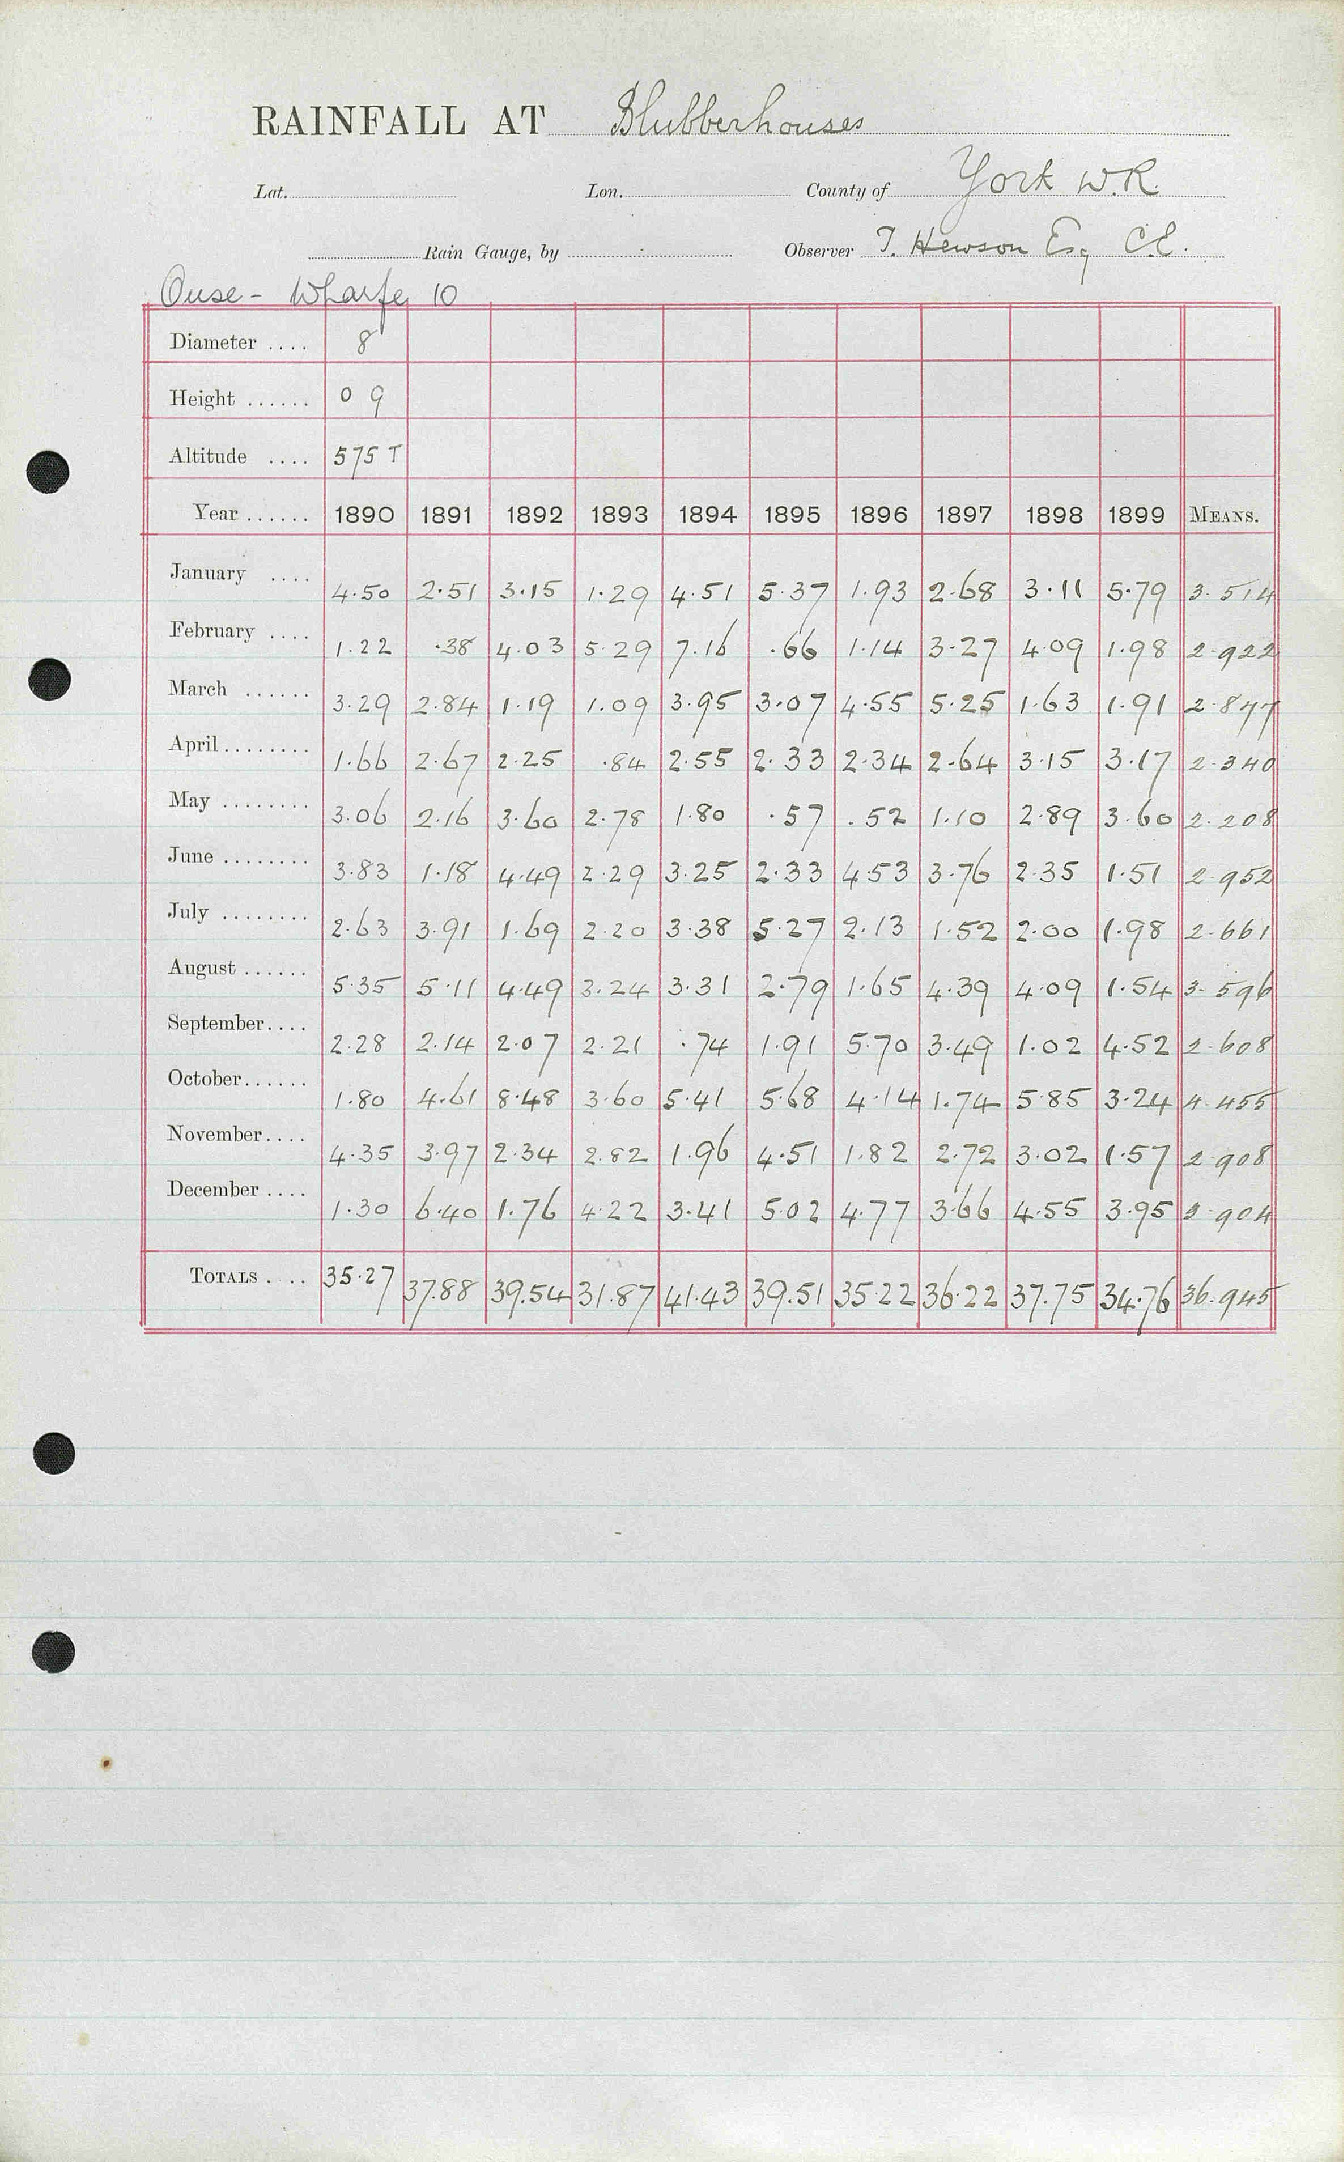 RAINFALL AT Blubberhouses
Lat. Lon. County of York W.R.
Rain Gauge, by Observer T. Hewson Esq C.E.
Ouse - Wharfe, 10
Diameter .... 8
Height ...... 0 9
Altitude .... 575 T
Year ...... 1890 1891 1892 1893 1894 1895 1896 1897 1898 1899 MEANS.
January .... 4.50 2.51 3.15 1.29 4.51 5.37 1.93 2.68 3.11 5.79 3.514
February .... 1.22 .38 4.03 5.29 7.16 .66 1.14 3.27 4.09 1.98 2.922
March ...... 3.29 2.84 1.19 1.09 3.95 3.07 4.55 5.25 1.63 1.91 2.877
April ........ 1.66 2.67 2.25 .84 2.55 2.33 2.34 2.64 3.15 3.17 2.340
May ........ 3.06 2.16 3.60 2.78 1.80 .57 .52 1.10 2.89 3.60 2.208
June ........ 3.83 1.18 4.49 2.29 3.25 2.33 4.53 3.76 2.35 1.51 2.952
July ........ 2.63 3.91 1.69 2.20 3.38 5.27 2.13 1.52 2.00 1.98 2.661
August ...... 5.35 5.11 4.49 3.24 3.31 2.79 1.65 4.39 4.09 1.54 3.596
September .... 2.28 2.14 2.07 2.21 .74 1.91 5.70 3.49 1.02 4.52 2.608
October ...... 1.80 4.61 8.48 3.60 5.41 5.68 4.14 1.74 5.85 3.24 4.455
November .... 4.35 3.97 2.34 2.82 1.96 4.51 1.82 2.72 3.02 1.57 2.908
December .... 1.30 6.40 1.76 4.22 3.41 5.02 4.77 3.66 4.55 3.95 3.904
TOTALS .... 35.27 37.88 39.54 31.87 41.43 39.51 35.22 36.22 37.75 34.76 36.945